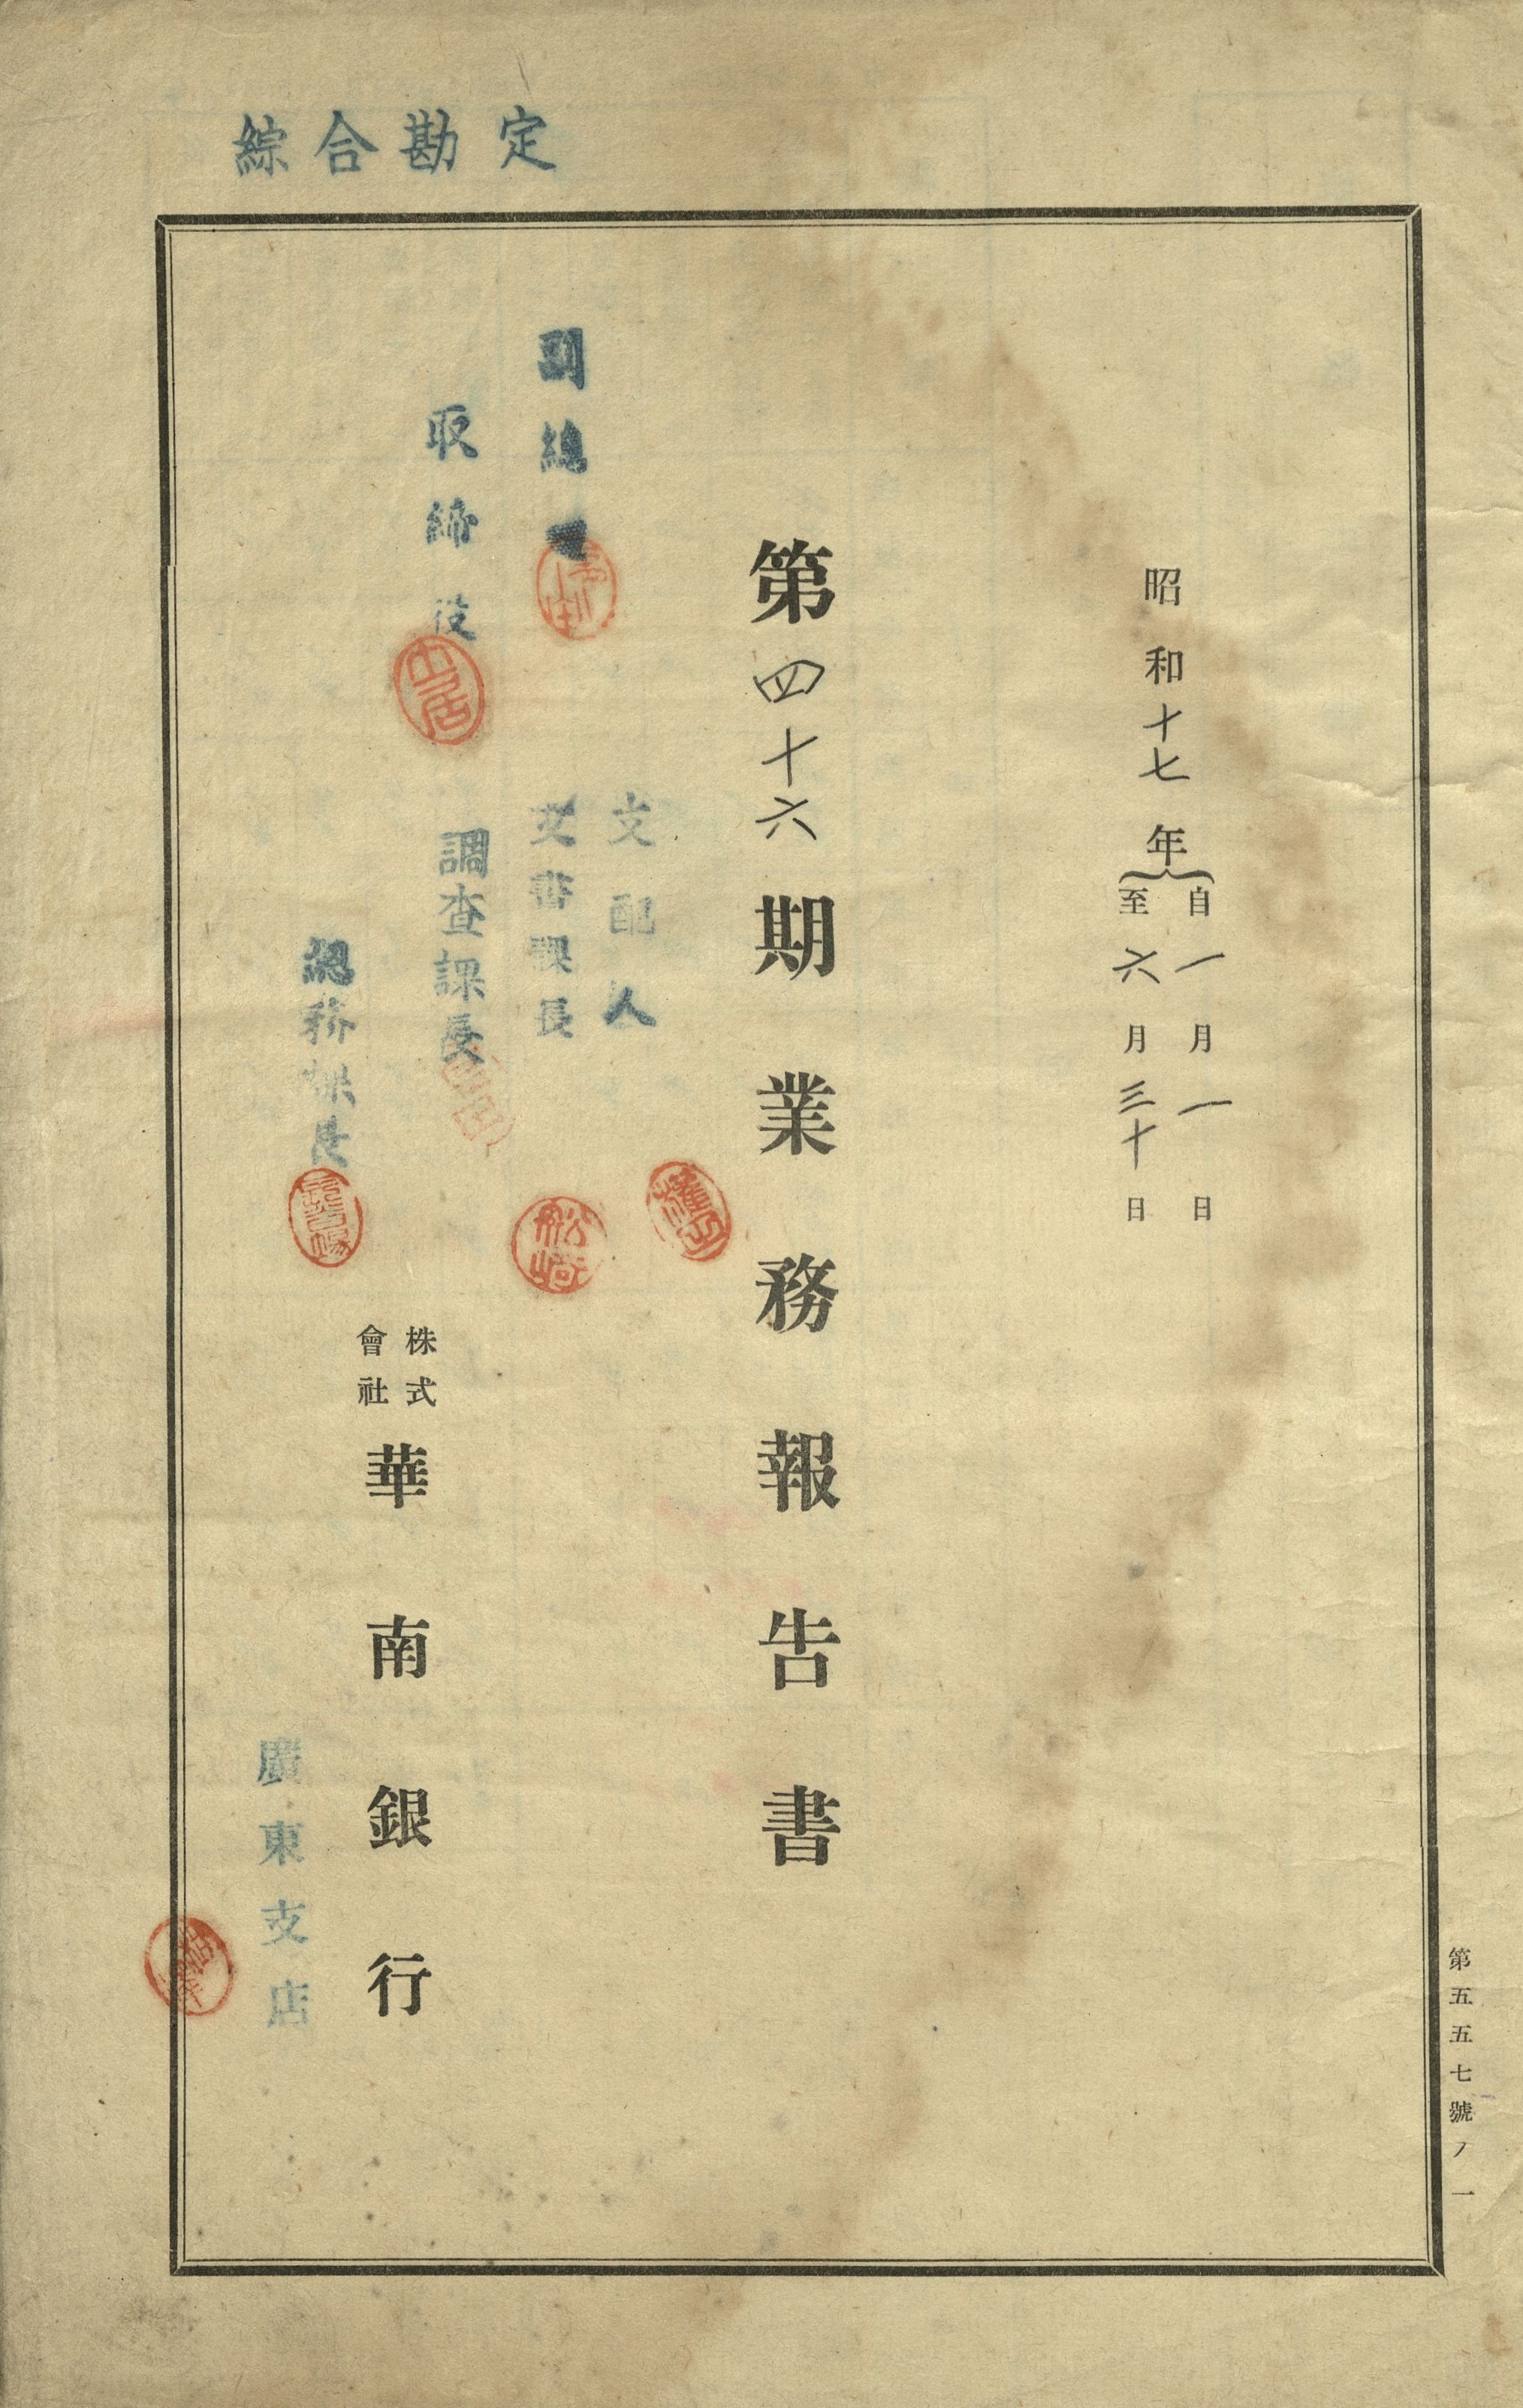 綜合勘定
昭和十七年
自一月一日
至六月三十日
第四十六期業務報告書
副總
取締役
支配人
文書課長
調査課長
總務課長
株式
會社
華南銀行
廣東支店
中居
船崎
第五五七號ノ一